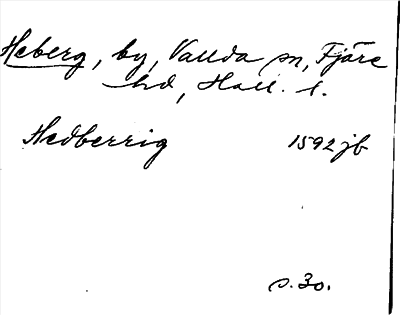 Heberg, by, Vallda sn, Fjäre
hd, Hall. l.
Hedberrig 1592 jb
s. 30.